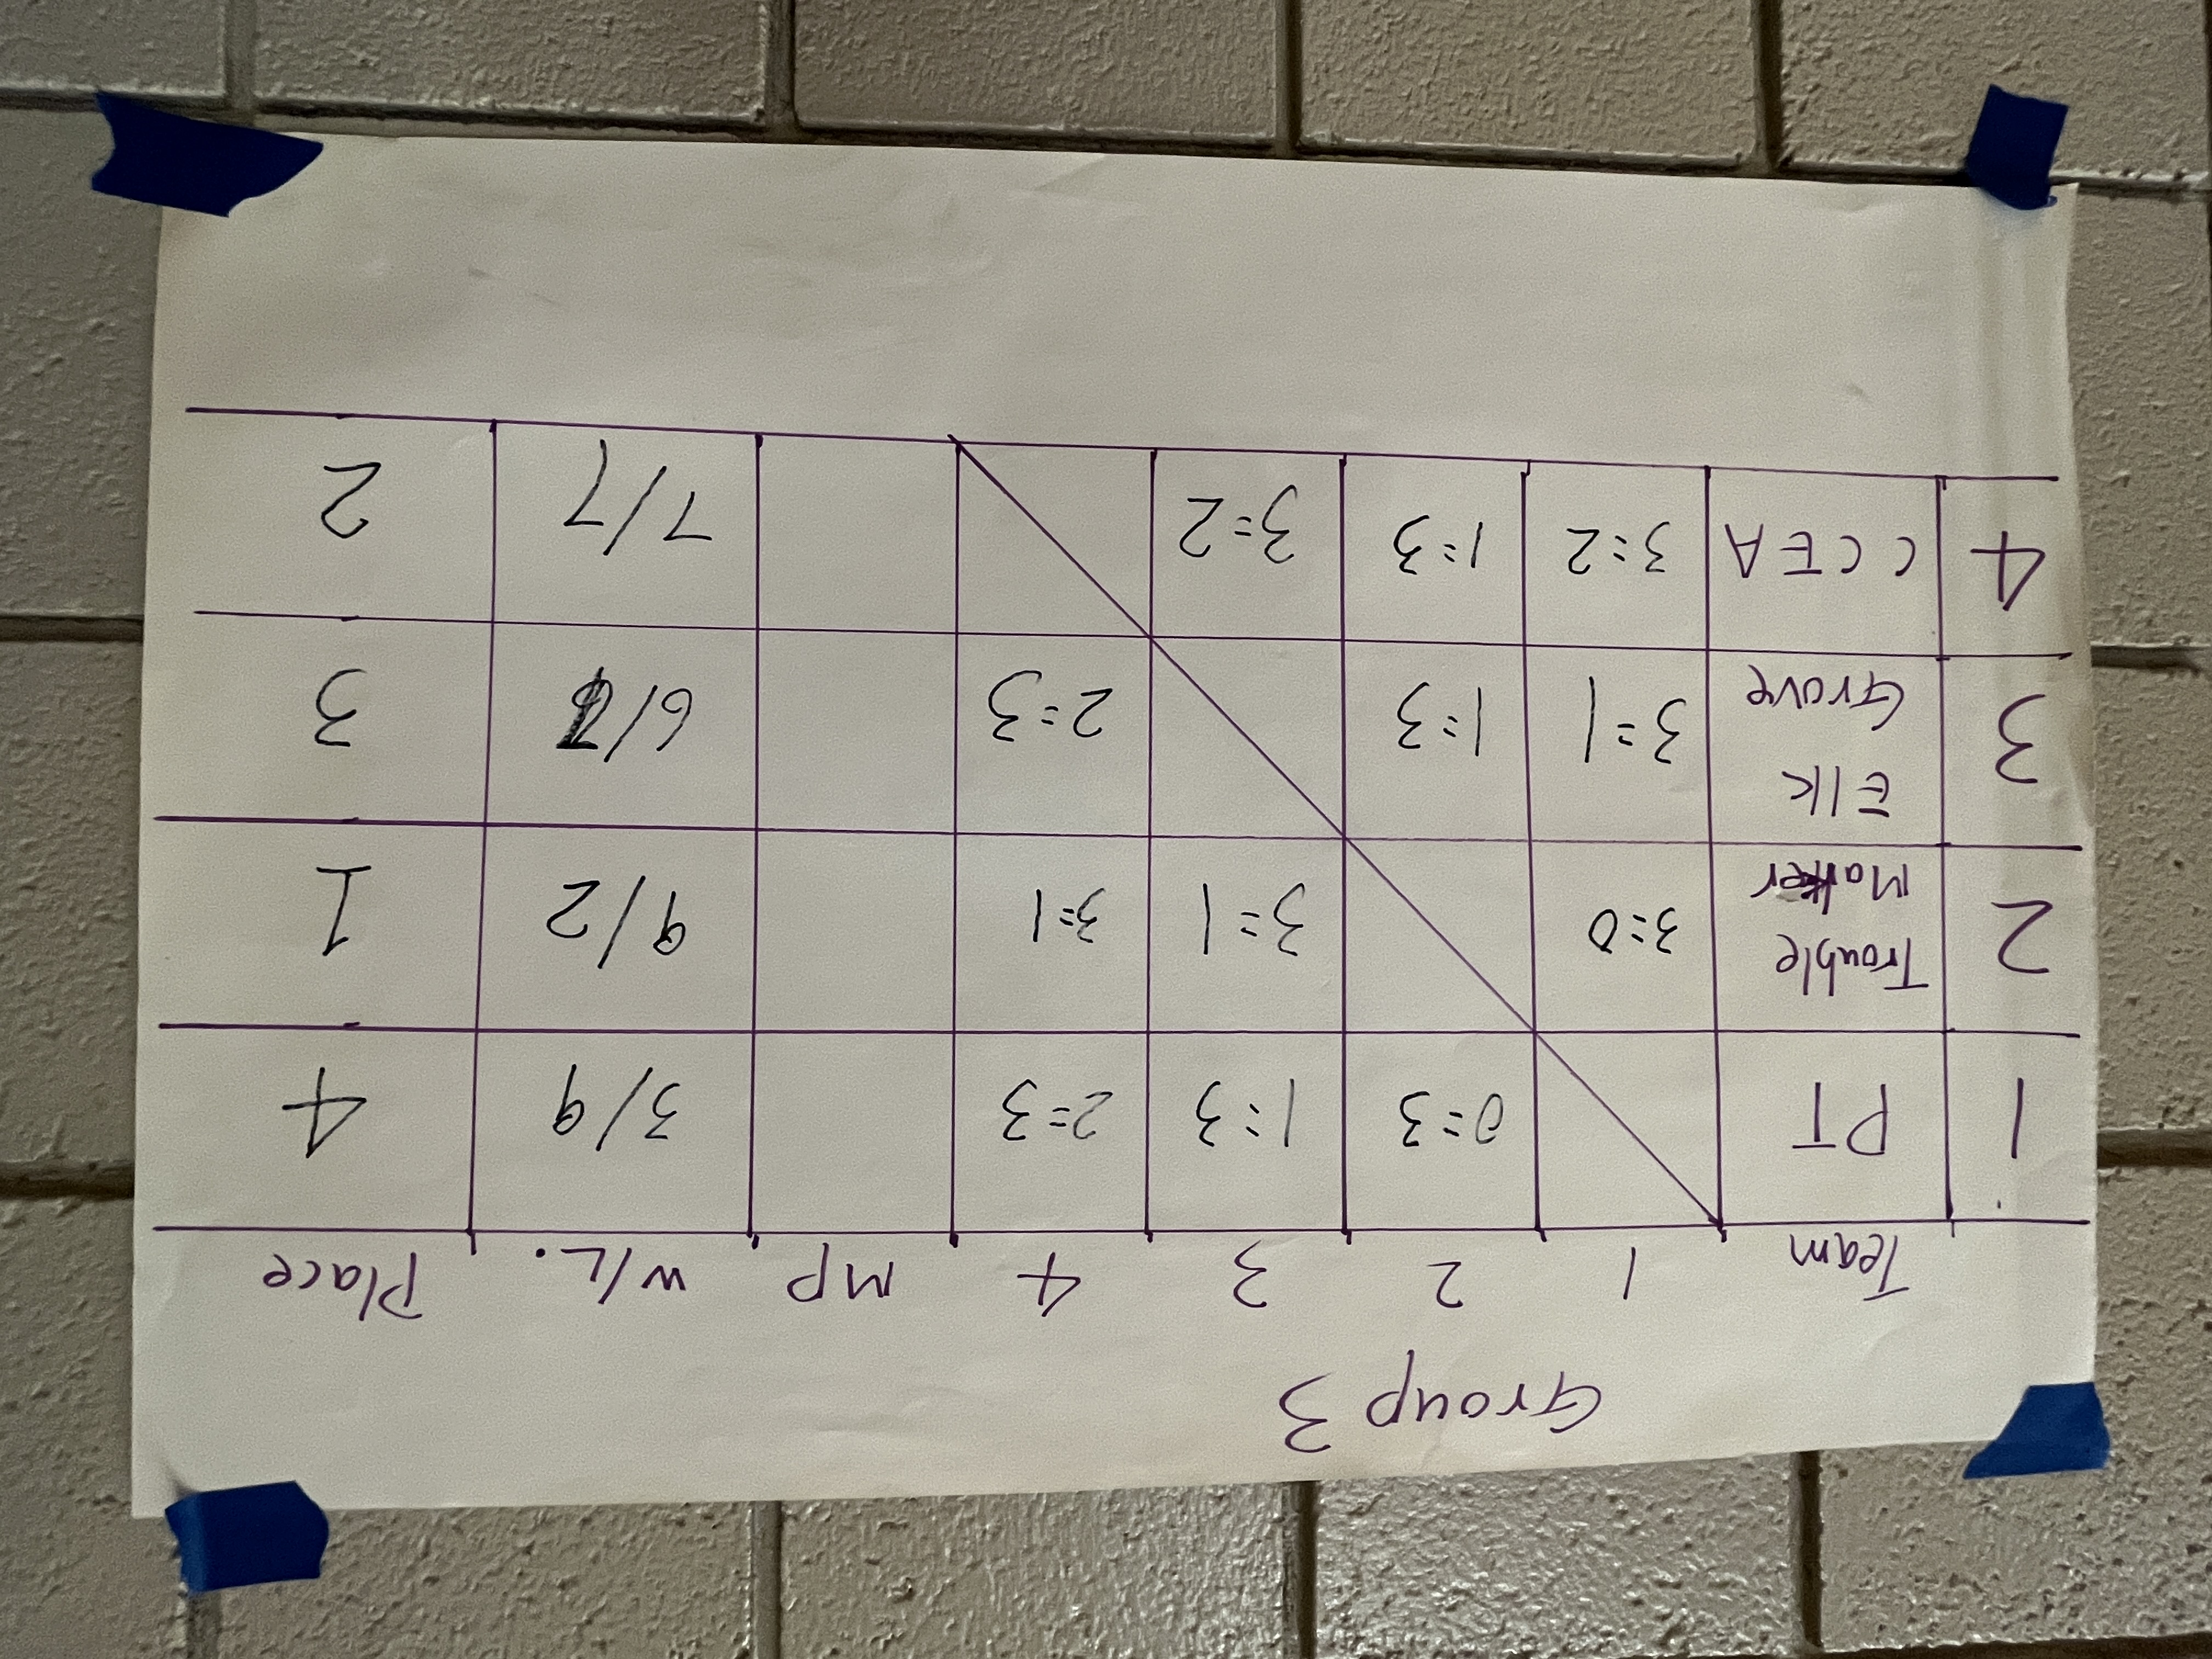 Group 3
Team 1 2 3 4 MP W/L. Place
1 PT 0=3 1=3 2=3 3/9 4
2 Trouble Maker 3=0 3=1 3=1 9/2 1
3 Elk Grove 3=1 1=3 2=3 6/7 3
4 CCEA 3=2 1=3 3=2 7/7 2